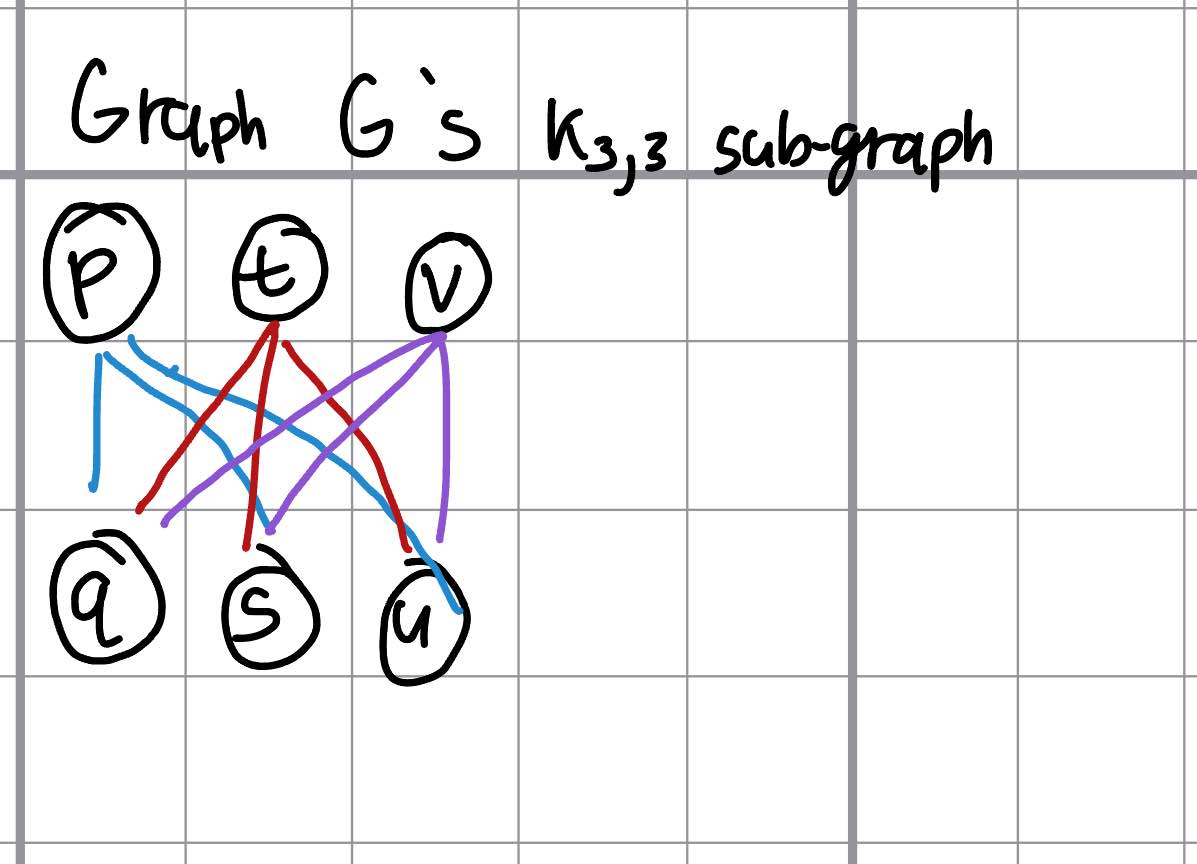 Graph G's K3,3 sub-graph
p t v
q s u